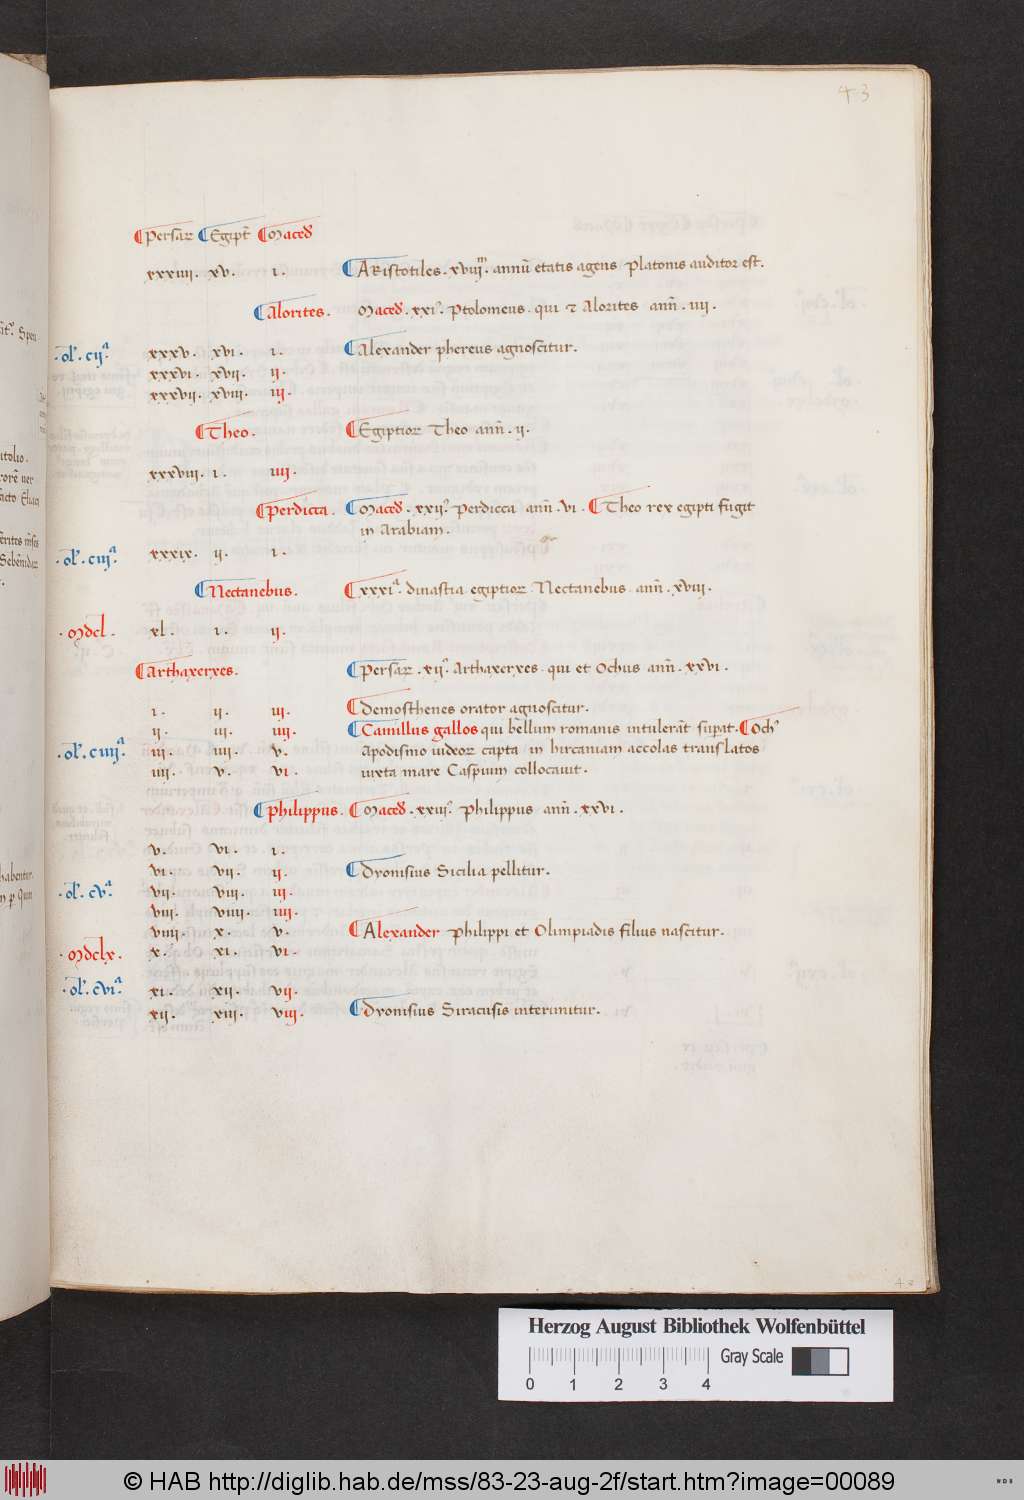 43
¶Persaꝝ ¶Egipt̃ ¶Maced̃
xxxiiii. xv. i. ¶ARistotiles. xviiiᵐ. annũ etatis agens Platonis auditor est.
¶Alorites. Maced̃. xxi.ᵒ Ptolomeus. qui ⁊ Alorites anñ. iiii.
.ol̃. ciiᵃ. xxxv. xvi. i. ¶Alexander phereus agnoscitur.
xxxvi. xvii. ii.
xxxvii. xviii. iii.
¶Theo. ¶Egiptioꝝ Theo anñ. ii.
xxxviii. i. iiii.
¶Perdicca. ¶Maced̃. xxii.ᵒ Perdicca anñ. vi. ¶Theo rex egipti fugit
in Arabiam.
.ol̃. ciiiᵃ. xxxix. ii. i.
¶Nectanebus. ¶xxxiᵃ. dinastia egiptioꝝ. Nectanebus. anñ. xviii.
.Mdcl. xl. i. ii.
¶Arthaxerxes. ¶Persaꝝ. xii.ᵒ Arthaxerxes. qui et Ochus anñ. xxvi.
i. ii. iii. ¶Demosthenes orator agnoscitur.
ii. iii. iiii. ¶Camillus gallos qui bellum romanis intulerãt suꝑat. ¶Och᾽
.ol̃. ciiiiᵃ. iii. iiii. v. Apodismo iudeoꝝ capta in hircaniam accolas translatos
iiii. v. vi. iuxta mare Caspium collocauit.
¶Philippus. ¶Maced̃. xxiii.ᵒ Philippus anñ. xxvi.
v. vi. i.
vi. vii. ii. ¶Dyonisius Sicilia pellitur.
.ol̃. cvᵃ. vii. viii. iii.
viii. viiii. iiii.
viiii. x. v. ¶Alexander Philippi et Olimpiadis filius nascitur.
.Mdclx. x. xi. vi.
.ol̃. cviᵃ. xi. xii. vii.
xii. xiii. viii. ¶Dyonisius Siracusis interimitur.
43
Herzog August Bibliothek Wolfenbüttel
Gray Scale
0 1 2 3 4
© HAB http://diglib.hab.de/mss/83-23-aug-2f/start.htm?image=00089